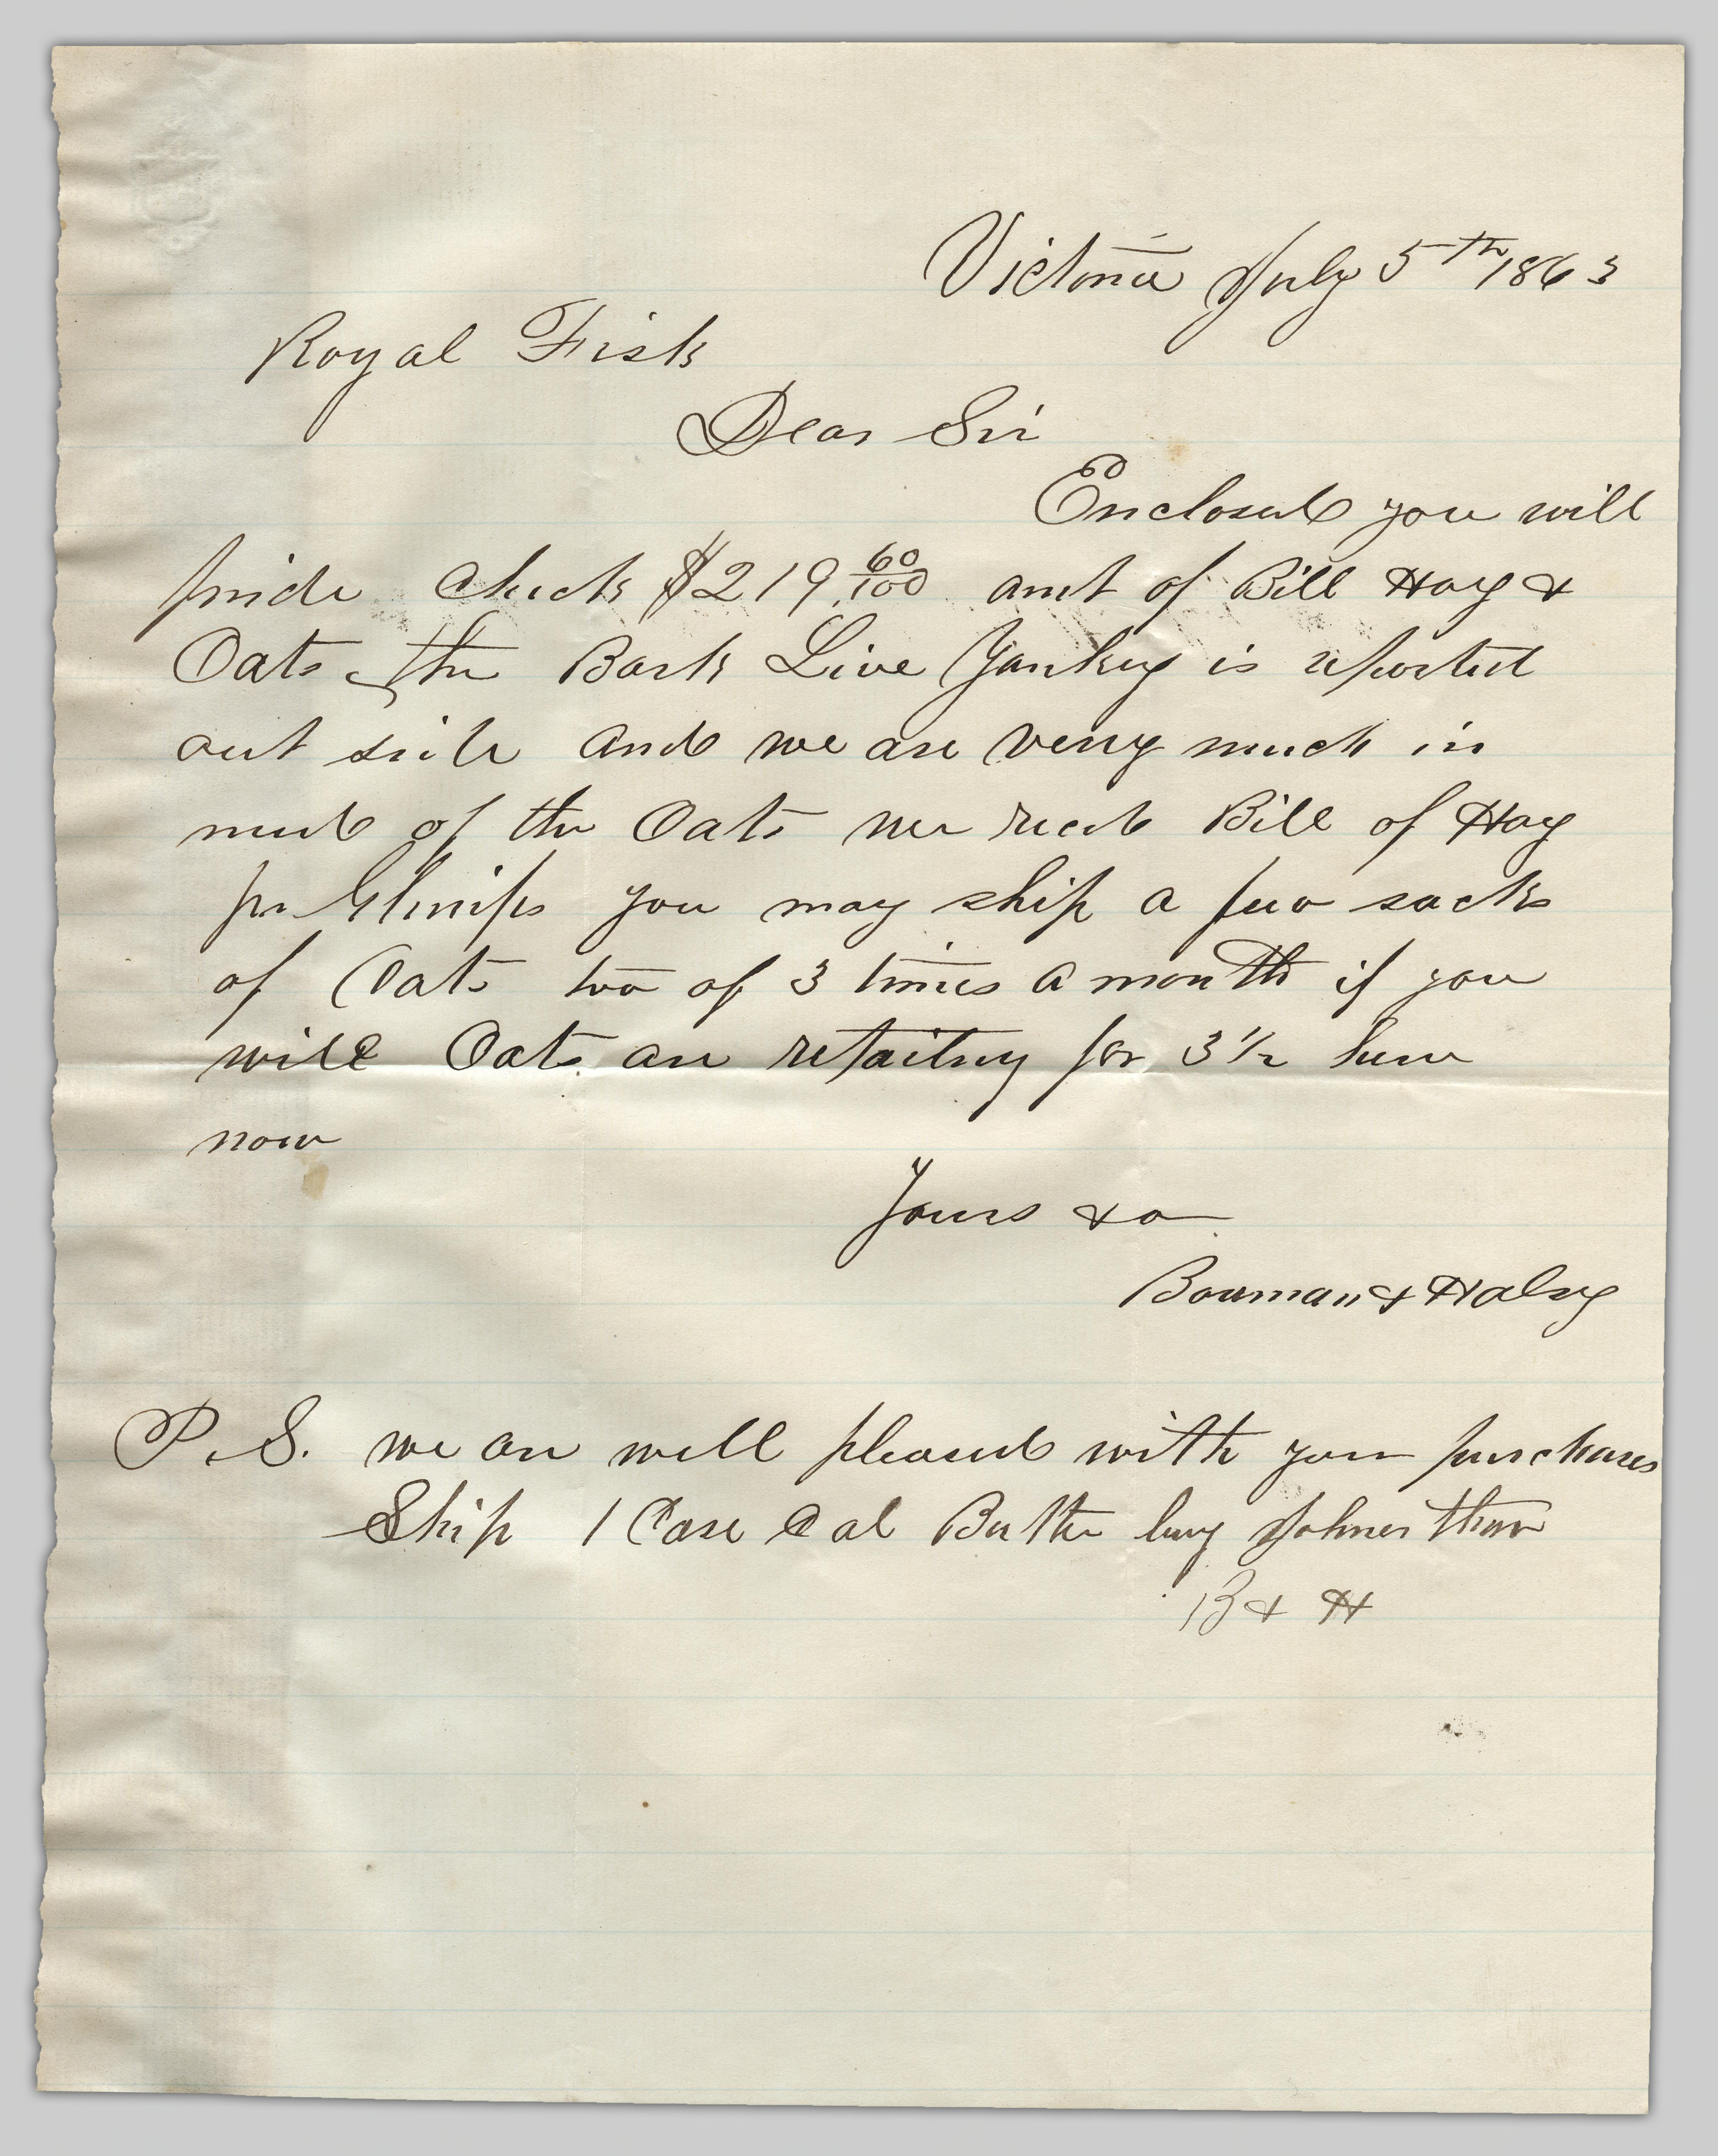 Victoria July 5th 1863
Royal Fisk
Dear Sir
Enclosed you will
finde Check $219.60/100 amt of Bill Hay &
Oats the Bark Live Yankey is reported
out side and we are very much in
need of the Oats we recd Bill of Hay
per you may ship a few sacks
of Oats two of 3 times a month if you
will Oats are retailing for 3 1/2 here
now
Yours &c
Bowman & Halsy
P.S. we are well pleased with your purchases
Ship 1 Case Cal Butter buy
B & H